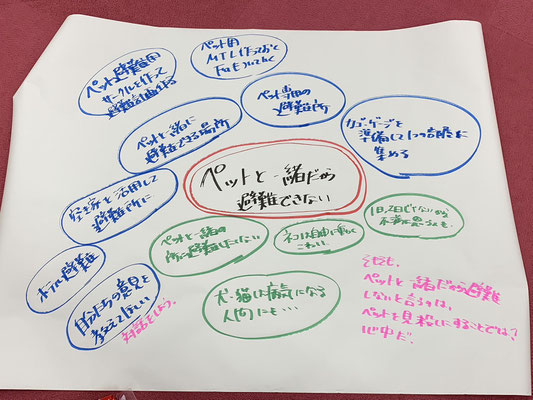 ペット避難用
サークルを作って
避難計画を作る
ペット用
作っておく
ペット専用の
避難所
ペットと一緒に
避難できる場所
カゴ・ゲージを
準備して1つの
集める
ペットと一緒だから
避難できない
空き家を活用して
避難所に
ペットと一緒の
所に避難したくない
ネコは自由に
こわい。
1日、2日じゃないから
不満に思う人も。
ホテル避難
自分たちの意見を
教えてほしい
対話をしよう。
犬・猫は病気になる
人間にも…
それでも、
ペットと一緒だから避難
しないと言うのは、
ペットを見殺しにすることでは?
心中だ。